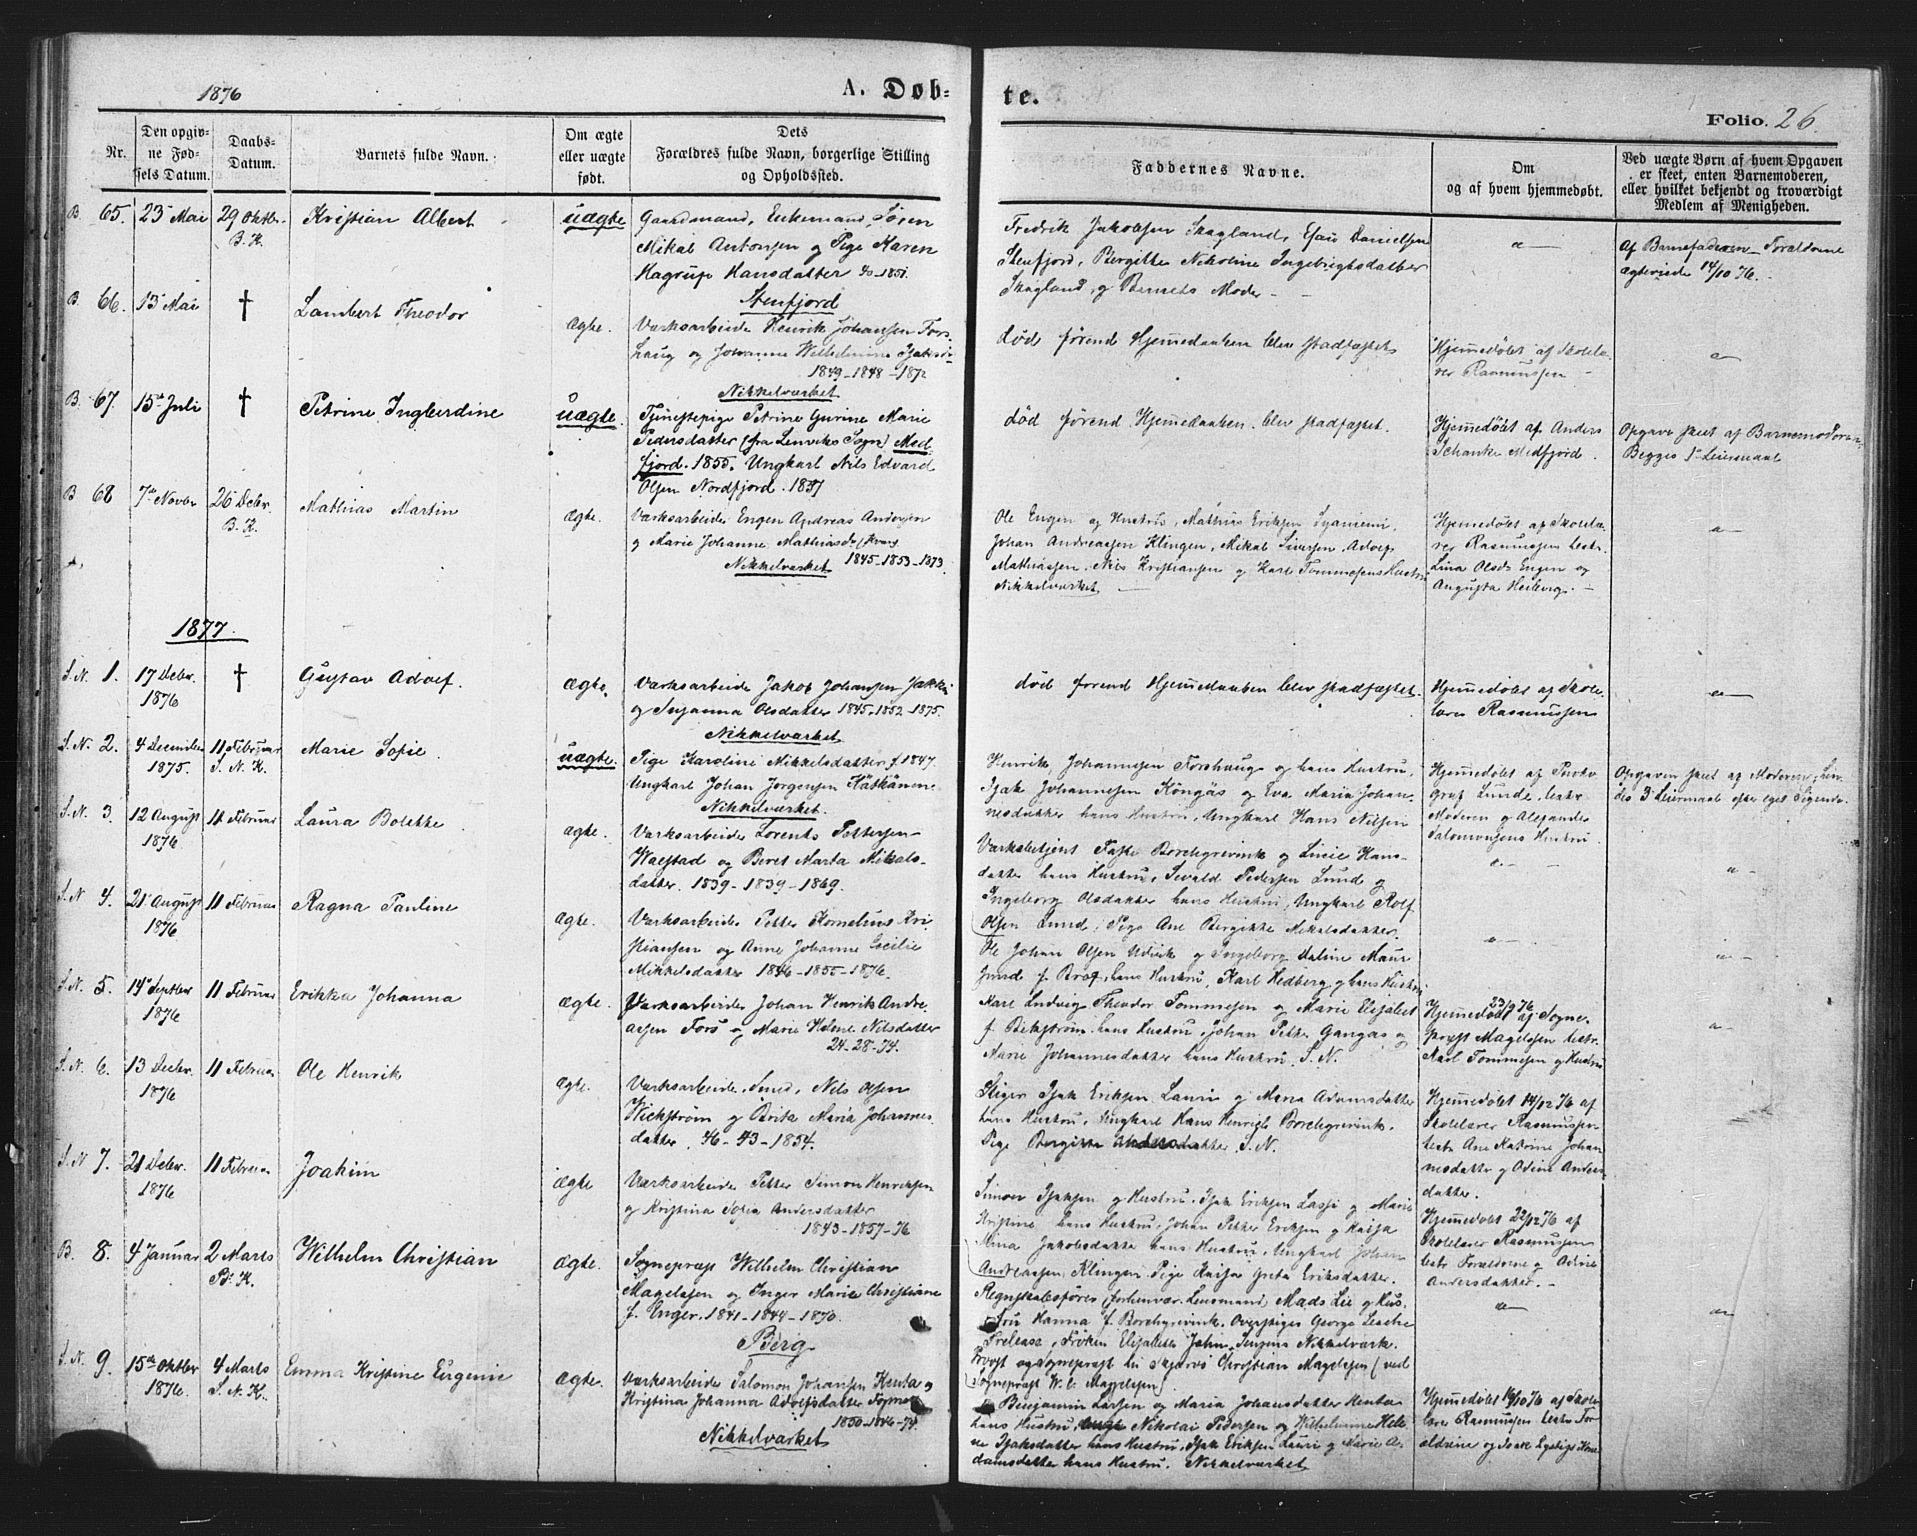 1876
A. Døb-
te.
Folio. 26.
Nr.
Den opgiv-
ne Fød-
sels Datum.
Daabs-
Datum.
Barnets fulde Navn.
Om ægte
eller uægte
født.
Dets
Forældres fulde Navn, borgerlige Stilling
og Opholdssted.
Faddernes Navne.
Om
og af hvem hjemmedøbt.
Ved uægte Børn af hvem Opgaven
er skeet, enten Barnemoderen,
eller hvilket bekjendt og troværdigt
Medlem af Menigheden.
B. 65. 23 Mai
29 Oktbr.
B. K.
Kristian Albert
uægte
Gaardmand, Enkemand Søren
Mikal Antonsen og Pige Karen
Hagrup Hansdatter 40-1851.
Stenfjord
Fredrik Jakobsen Skagland, Esau Danielsen
Stenfjord, Bergitte Nikoline Ingebrigtsdatter
Skagland, og Barnets Moder -
Af Barnefaderen - Forældrene
ægteviede 14/10 76.
B. 66. 13 Mai
†
Lambert Theodor
ægte.
Værksarbeider Henrik Johansen Fors-
haug og Johanne Wilhelmine Isaksdr
1849-1848-1872
Nikkelværket
død førend Hjemmedaaben blev stadfæstet
Hjemmedøbt af Skolelæ-
rer Rasmussen -
B. 67. 15de Juli
†
Petrine Ingberdine
uægte.
Tjenestepige Petrine Gurine Marie
Pedersdatter (fra Lenviks Sogn) Med-
fjord. 1855. Ungkarl Nils Edvard
Olsen Nordfjord. 1837
død førend Hjemmedaaben blev stadfæstet.
Hjemmedøbt af Anders
Schanke Medfjord.
Opgave skeet af Barnemoderen
Begges 1ste Leiermaal
B 68 7de Novbr
26 Debr.
B. K.
Mathias Martin
ægte.
Værksarbeider Engen Andreas Andersen
og Marie Johanne Mathiasdr
1845-1853-1873.
Nikkelværket
Ole Engen og Hustru, Mathias Eriksen
Johan Andreassen Klingen, Mikal Siversen, Adolf
Mathiassen. Nils Kristiansen og Karl Tommesens Hustru
Nikkelværket
Hjemmedøbt af Skolelæ-
rer Rasmussen testr.
Lina Olsdr Engen og
Augusta Heiberg. -
1877.
S. N. 1. 17 Debr.
1876
†
Gustav Adolf.
ægte.
Værksarbeider Jakob Johansen
og Susanna Olsdatter 1845-1852-1875.
Nikkelværket
død førend Hjemmedaaben blev stadfæstet.
Hjemmedøbt af Skole-
lærer Rasmussen
S. N. 2. 4 December
1875.
11 Februar
S. N. K.
Marie Sofie
uægte.
Pige Karoline Mikkelsdatter f. 1847.
Ungkarl Johan Jørgensen
Nikkelværket.
Henrik Johannesen Forshaug og hans Hustru,
Isak Johannesen Köngäs og Eva Maria Johan-
nesdatter hans Hustru, Ungkarl Hans Nilsen
Hjemmedøbt af
Lunde, testr
Moderen og Alexander
Salomonsens Hustru
Opgaven skeet af Moderen,
3die Leiermaal efter eget Sigende.
S. N. 3. 12 August
1876.
11 Februar
Laura Bolette
ægte.
Værksarbeider Lorents Pettersen
Walstad og Beret Marta Mikals-
datter. 1839-1839-1869.
Værksbetjent Faste Borchgrevink og Lucie Hans-
datter hans Hustru, Sevald Pedersen Lund og
Ingeborg Olsdatter hans Hustru, Ungkarl Rolf
Olsen Lund, Pige Ane Bergitte Mikalsdatter.
S. N 4. 21 August
1876
11 Februar
Ragna Pauline
ægte.
Værksarbeider Petter Kornelius Kri-
stiansen og Anne Johanne Cecilie
Mikkelsdatter 1846-1855-1876.
Ole Johan Olsen og Ingeborg Maline
f. hans Hustru, Karl Hedberg og hans Hustru
S. N. 5. 19de Septbr
1876
11 Februar
Erikka Johanna
ægte.
Værksarbeider Johan Henrik Andre-
asen Fors og Marie Helene Nilsdatter
24-28-74.
Karl Ludvig Theodor Tommesen og Marie Elisabet
f. Bekstrøm hans Hustru, Johan Petter Gangas og
Marie Johannesdatter hans Hustru. S. N.
23/9 76
Hjemmedøbt af Sogne-
præst Magelssen testr.
Karl Tommesen og Hustru
S. N. 6. 13 Debr.
1876
11 Februar
Ole Henrik
ægte.
Værksarbeider, Smed, Nils Olsen
Wickstrøm og Brita Maria Johannes-
datter. 46-43-1854.
Stiger Isak Eriksen Lauri og Maria Adamsdatter
hans Hustru, Ungkarl Hans Henrich Borchgrevink,
Pige Bergitte Andersdatter. S. N.
Hjemmedøbt 14/12 76 af
Skolelærer Rasmussen
testr Ane Katrine Johan-
nesdatter og Odine Anders-
datter.
S. N 7. 21 Debr.
1876
11 Februar
Joakim
ægte
Værksarbeider Petter Simon Henriksen
og Kristina Sofia Andersdatter
1843-1857-76
Simon Isaksen og Hustru, Isak Eriksen og Marie
Kristine hans Hustru, Johan Petter Eriksen og Kaisa
Mina Jakobsdatter hans Hustru, Ungkarl Johan
Andreassen Klingen, Pige Kaisa Greta Eriksdatter.
Hjemmedøbt 22/12 76 af
Skolelærer Rasmussen
testr Forældrene og Odine
Andersdatter. -
B. 8. 4 Januar
2 Marts
B. K.
Wilhelm Christian
ægte.
Sognepræst Wilhelm Christian
Magelssen og Inger Marie Christiane
f. Enger. 1841-1844-1870.
Berg
Regnskabsfører, forhenvær. Lensmand, Mads Lie og Hus-
tru Hanna f. Borchgrevink, Overstiger George Leache
Trelease, Frøken Elisabeth Jahn, Nikkelværk.
Provst og Sognepræst til Skjervø Christian Magelssen (ved
Sognepræst W. C. Magelssen).
S. N. 9. 15de Oktbr
1876.
4 Marts
S. N. K.
Emma Kristine Eugenie
ægte.
Værksarbeider Salomon Johansen Kenta og
Kristina Johanna Adolfsdatter
1850-1846-74.
Nikkelværket
Benjamin Larsen og Maria Johansdatter Kenta
hans Hustru, Nikolai Pedersen og Wilhelmine Hele-
ne Isaksdatter hans Hustru, Isak Eriksen Lauri og Marie A-
damsdatter hans Hustru. Nikkelværket
Hjemmedøbt 16/10 76 af Skole-
lærer Rasmussen testr For-
ældrene og